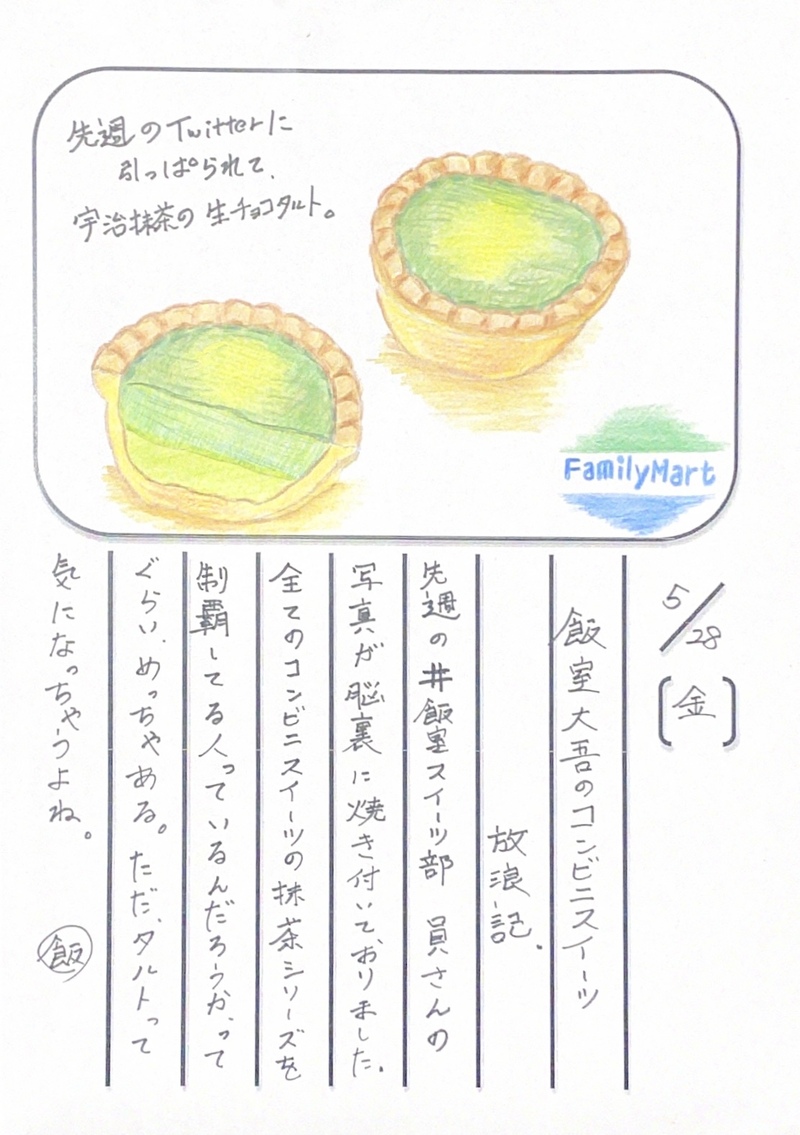 先週のTwitterに
引っぱられて、
宇治抹茶の生チョコタルト。
FamilyMart
5/28
(金)
飯室大吾のコンビニスイーツ
放浪記.
先週の#飯室スイーツ部 員さんの
写真が脳裏に焼き付いておりました.
全てのコンビニスイーツの抹茶シリーズを
制覇してる人っているんだろうか、って
ぐらい、めっちゃある。ただ、タルトって
気になっちゃうよね。
飯